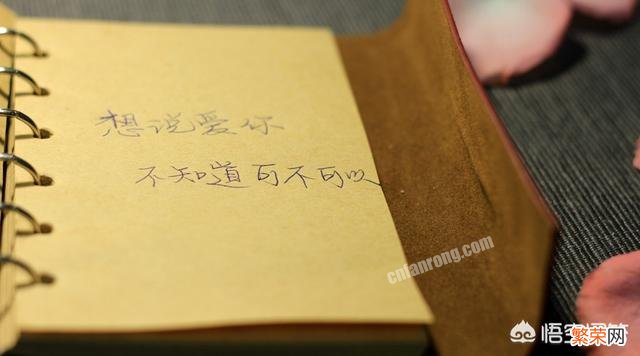 想说爱你
不知道可不可以
cnfanrong.com
悟空问答
繁荣网